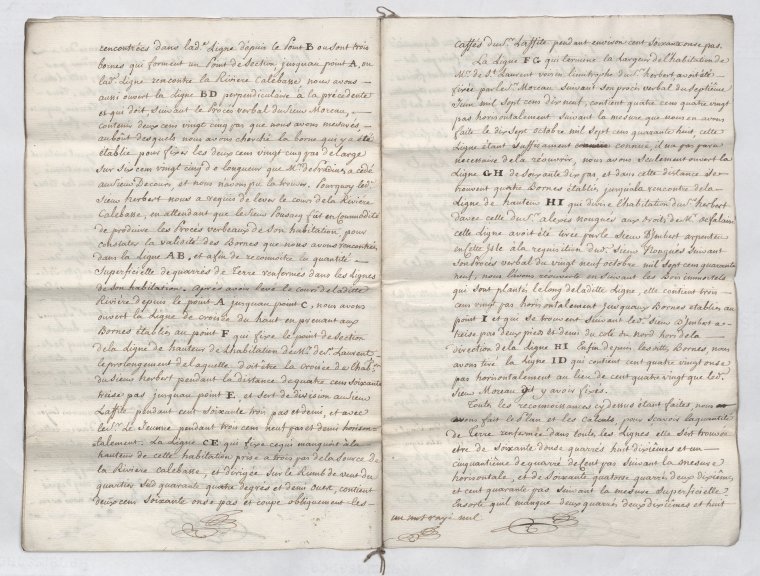 rencontrées dans lad.e Ligne depuis le Point B ou sont trois
bornes qui forment un Point de Section, jusqu'au point A, ou
lad.e ligne rencontre la Riviere Calebane nous avons
aussi ouvert la ligne BD perpendiculaire a la précédente
et qui doit, suivant le Procès verbal du Sieur Moreau,
contenir deux cens vingt cinq pas que nous avons mesurés
au bout desquels nous avons cherché la borne qui y a été
établie pour fixer les deux cens vingt cinq pas de large
sur Six cens vingt cinq de longueur que M.r a cédé
au Sieur Decours, et nous n'avons pu la trouver. Pourquoy led.
Sieur herbert nous a requis de lever le cours de la Riviere
Calebasse, en attendant que le Sieur fut en Commodité
de produire les Procès verbeaux de son habitation, pour
constater la validité des Bornes que nous avons rencontrées
dans la ligne AB, et afin de reconnoitre la quantité
Superficielle de quarrés de Terre renfermés dans les Lignes
de son habitation, après avoir levé le cours de laditte
Riviere depuis le point A jusqu'au point C, nous avons
ouvert la Ligne de croisée du haut en prenant aux
Bornes établies au point F qui fixe le point de Section
de la Ligne de hauteur de L'habitation de M.r de S.t Laurent
le prolongement de laquelle doit être la croisée de l'hab.on
du Sieur herbert pendant la distance de quatre cens soixante
treise pas jusqu'au point E, et sert de division au Sieur
Laffite pendant cent soixante trois pas et demi, et avec
le S.r Le Jeune pendant trois cens neuf pas et demi horison-
talement: La Ligne CE qui fixe ce qui manquoit à la
hauteur de cette habitation prise a trois pas de la Source de
la Riviere Calebasse, et dirigée Sur le Rumb de vent du
quartier Sud quarante quatre degrés et demi Ouest, contient
deux cens soixante onse pas et coupe obliquement les
caffés du S.r Laffite pendant environ cent soixante onse pas.
La Ligne FG qui termine la Largeur de l'habitation de
M.r de S.t Laurent voisin limitrophe du S.r herbert a été
fixée par le S.r Moreau Suivant Son procès verbal du Septieme
mil Sept cens dix neuf, contient quatre cens quatre vingt
pas horisontalement Suivant la mesure que nous en avons
faite le dix Sept octobre mil Sept cens quarante huit, cette
Ligne étant suffisament connüe, il n'a pas paru
necessaire de la réouvrir, nous avons Seulement ouvert la
Ligne GH de Soixante dix pas, et dans cette distance Se
trouvent quatre Bornes établies jusqu'a la rencontre de la
Ligne de hauteur HI qui divise l'habitation du S.r herbert
d'avec celle du S.r alexis nougués aux droits de M.r
celle Ligne avoit été tirée par le Sieur D'Imbert arpenteur
en cette Isle a la requisition du S.r Sieur Nougués Suivant
Son Procès verbal du vingt neuf octobre mil Sept cens quarante
neuf, nous L'avons réouverte en Suivant les Bois immortels
qui sont plantés le long de ladite Ligne, elle contient trois
cens vingt pas horisontalement jusqu'aux Bornes établies au
point I et qui se trouvent Suivant led. Sieur D'Imbert a
treise pas deux pieds et demi du coté du Nord hors de la
direction de la Ligne HI Enfin depuis lesdittes Bornes, nous
avons tiré la Ligne ID qui contient cent quatre vingt onse
pas horisontalement au lieu de cent quatre vingt que led.
Sieur Moreau y avoir fixés.
Toutes les reconnoissances cy dessus étant faites, nous
avons fait le Plan et les Calculs, pour sçavoir la quantité
de Terre renfermée dans toutes les Lignes elle s'est trouvée
etre de Soixante douse quarrés huit dixiemes et un
cinquantieme de quarré de cent pas Suivant la mesure
horisontale, et de Soixante quatorse quarrés deux dixiemes,
et cent quarante pas Suivant la mesure Superficielle.
Ensorte qu'il manque deux quarrés deux dixiemes et huit
un mot rayé nul